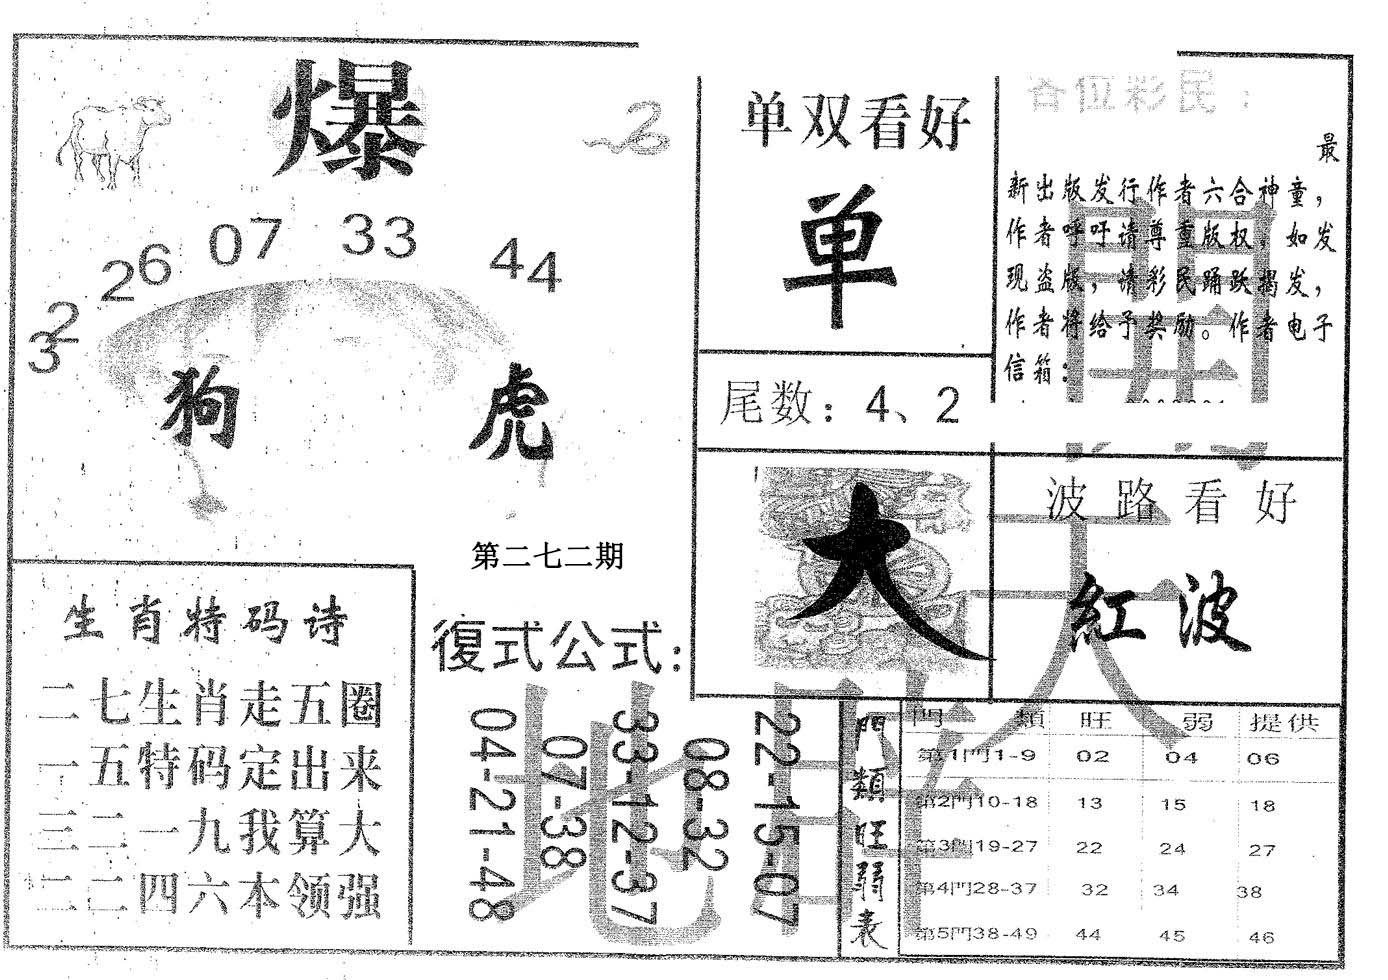 爆
2
32 26 07 33 44
狗 虎
第二七二期
生肖特码诗
二七生肖走五圈
一五特码定出来
三二一九我算大
二二四六本领强
復式公式:
04-21-48
07-38
33-12-37
08-32
22-15-07
单双看好
单
尾数: 4、2
大
各位彩民:
最
新出版发行作者六合神童,
作者呼吁请尊重版权,如发
现盗版,请彩民踊跃揭发,
作者将给予奖励。作者电子
信箱:
波路看好
紅波
門類旺弱表
門類 旺 弱 提供
第1門1-9 02 04 06
第2門10-18 13 15 18
第3門19-27 22 24 27
第4門28-37 32 34 38
第5門38-49 44 45 46